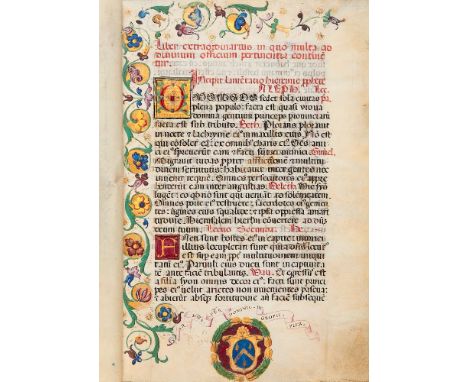 Liber extraordinarius in quo multa ad
divinum officium pertinentia continen
tur.
Incipit lamentatio hieremie pphete
ALEPH. Lec.
QVOMODO sedet sola civitas
plena populo: facta est quasi vidua
domina gentium princeps provinciarum
facta est sub tributo. Beth. Plorans ploravit
in nocte et lachryme eius in maxillis eius: Non est
qui consolet ex omnibus charis ei. Oes ami
ci ei spreverunt eam et facti sunt ei inimici. Gimel.
Migravit iudas ppter afflictionem et multitu
dinem servitutis: habitavit inter gentes nec
invenit requiem. Omnes persecutores ei appre
henderunt eam inter angustias. Deleth. Vie syon
lugent: eo quod non sint qui veniant ad solemnitatem.
Omnes porte ei destructe: sacerdotes ei gemen
tes: virgines eius squalide: et ipsa oppressa amari
tudine. Hierusalem convertere ad
deum tuum. Lectio Secunda. He.
Facti sunt hostes ei in capite: inimici
illi locupletati sunt: quia locutus
est super eam ppter multitudinem iniquita
tum ei. Parvuli eius ducti sunt in captivita
te ante faciem tribulantis. Vau. Et egressus est
a filia syon omnis decor ei: facti sunt princi
pes ei velut arietes non invenientes pascua:
et abierunt absque fortitudine ante faciem subsequentis